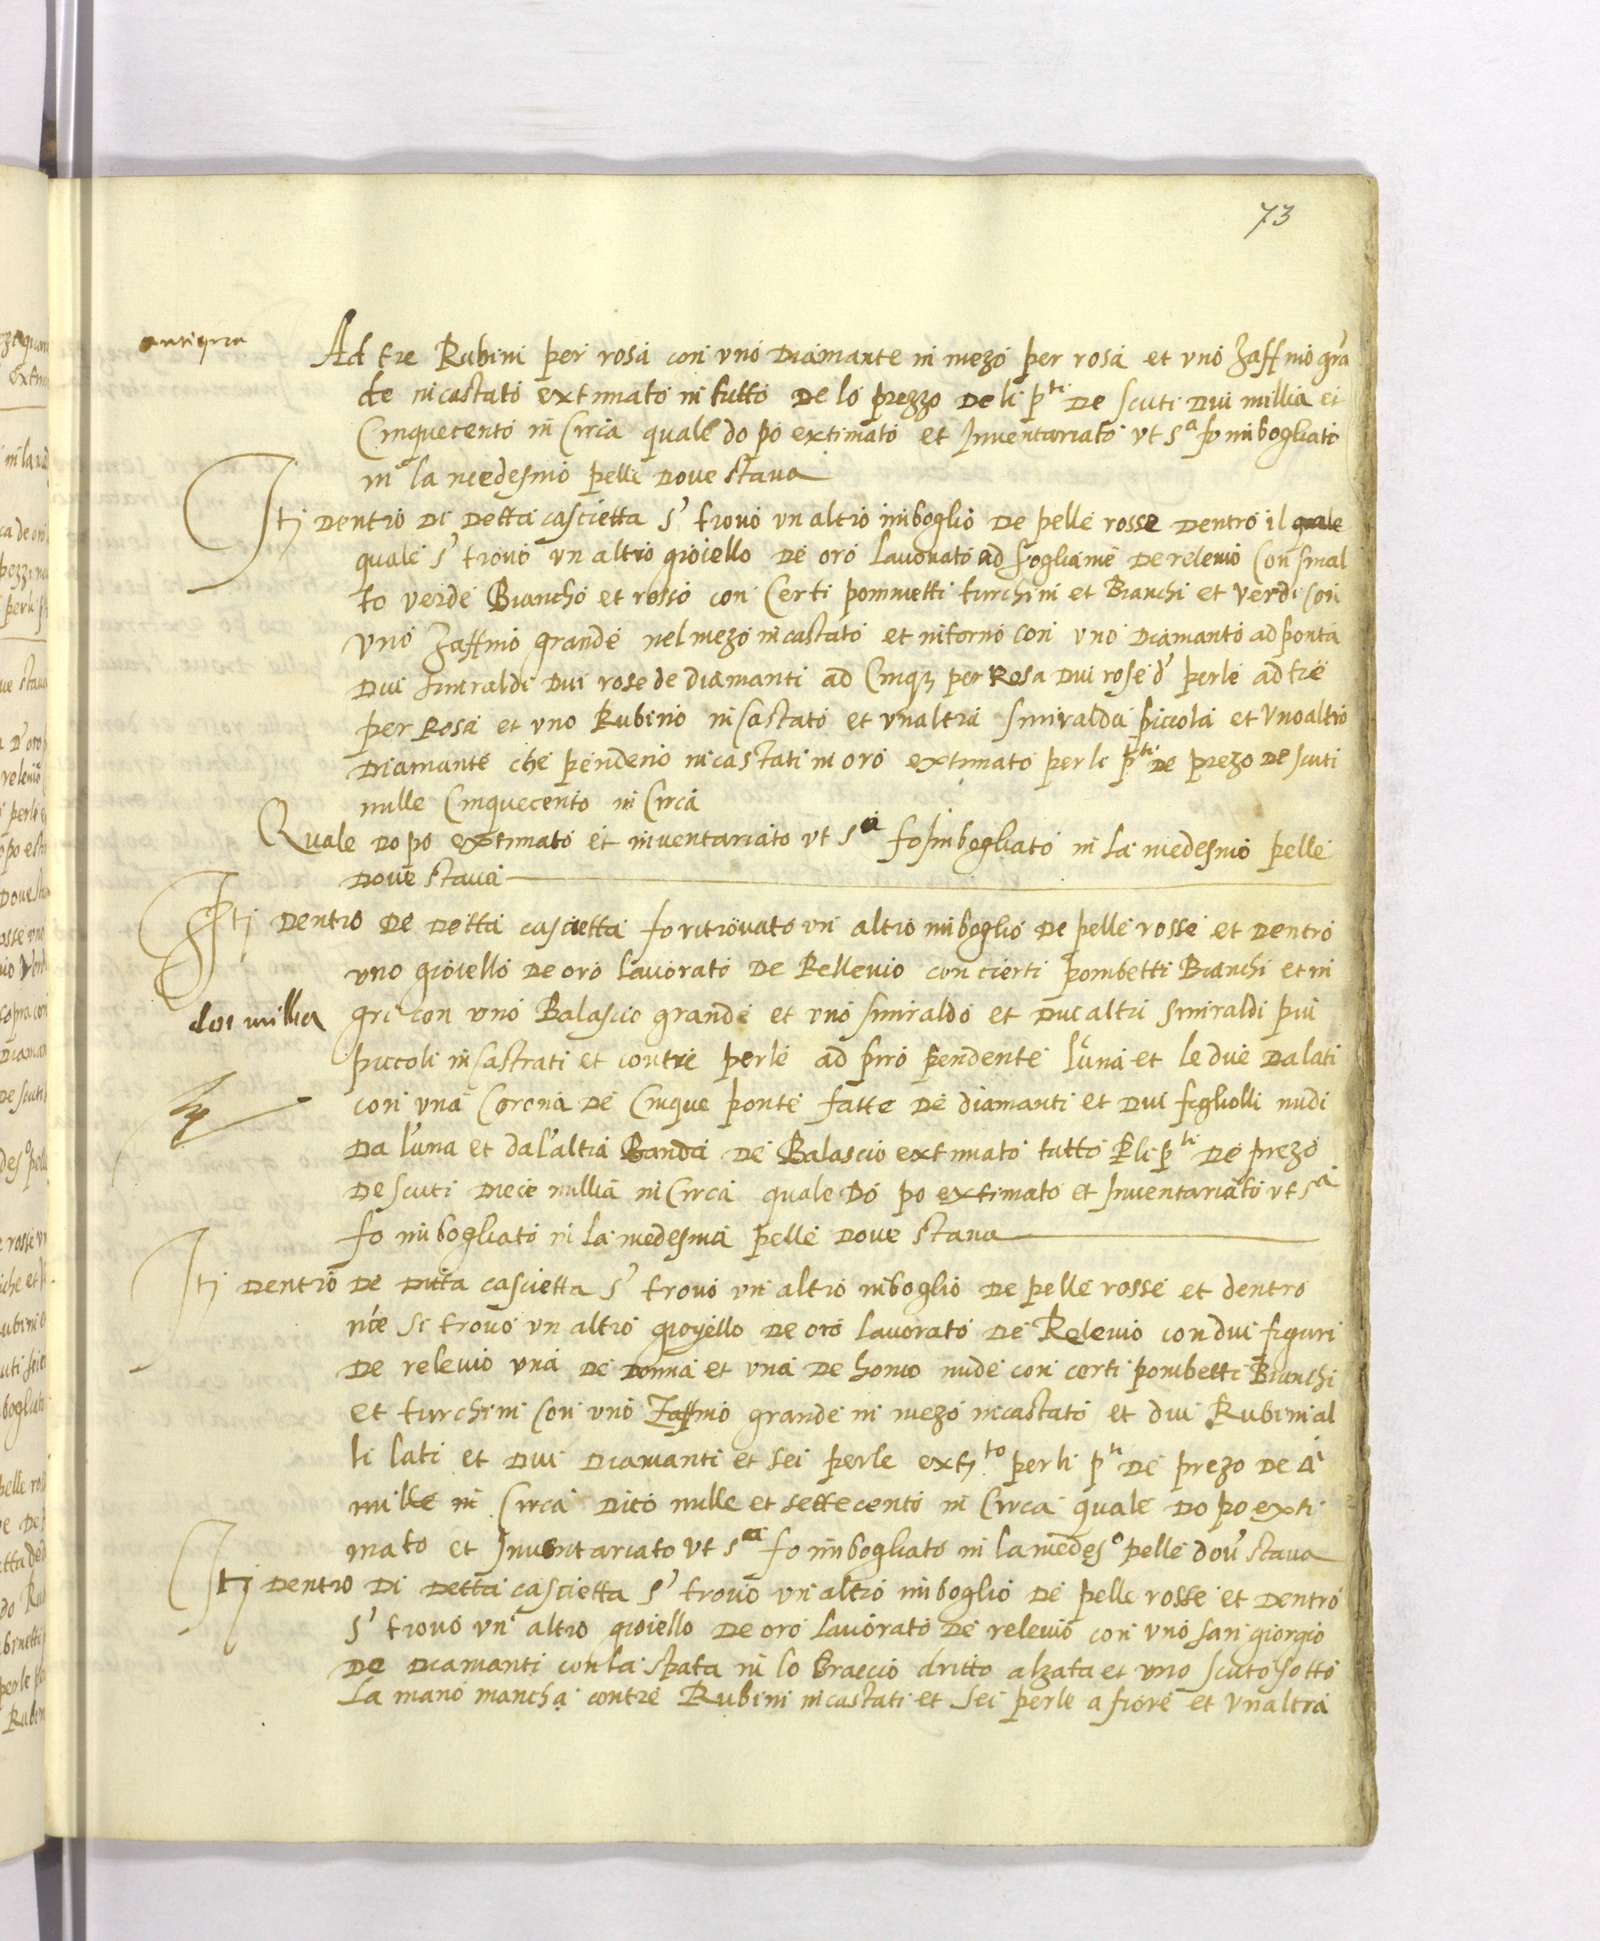 73
antiqua
Ad tre Rubini per rosa con uno Diamante in mezo per rosa et uno Zaffino gra
de incastato extimato in tutto De lo prezzo De li p.ti De scuti Dui millia et
Cinquecento in Circa quale do po extimato et Inventariato ut s.a fo imbogliato
in la medesmo pelle Dove stava
Itj Dentro Di Detta cascietta s' trovò un altro imboglio De pelle rosse Dentro il quale
quale s' trovò un altro gioiello De oro Lavorato ad fogliame De relevio Con smal
to verde Biancho et rosso con Certi pommetti turchini et Bianchi et verdi Con
uno Zaffino grande nel mezo incastato et intorno con uno Diamanto ad ponta
Dui smiraldi Dui rose de diamanti ad Cinq3 per Rosa Dui rose d' perle ad tre
per Rosa et uno Rubino incastato et unaltra smiralda piccola et Unoaltro
Diamante che pendeno incastati in oro extimato per li p.ti De prezo De scuti
mille Cinquecento in Circa
Quale Do po extimato et inventariato ut s.a fo imbogliato in la medesmo pelle
Dove stava
Itj Dentro De Detta cascietta fo ritrovato un altro imboglio De pelle rosse et Dentro
uno gioiello De oro lavorato De Rellevio con cierti pombetti Bianchi et ni
doi millia
gri con uno Balascio grande et uno smiraldo et Due altri smiraldi piu
piccoli incastrati et con tre perle ad piro pendente l'una et le due Da lati
con una Corona De Cinque ponte fatte De diamanti et Dui figliolli nudi
Da l'una et da l'altra Banda De Balascio extimato tutto p li p.ti De prezo
De scuti Diece millia in Circa quale Do po extimato et Inventariato ut s.a
fo imbogliato in la medesma pelle Dove stava
Itj Dentro De Ditta cascietta s' trovò un altro imboglio De pelle rosse et dentro
nce si trovò un altro gioyello De oro lavorato De Relevio con dui figuri
De relevio una De Donna et una De homo nude con certi pombetti Bianchi
et turchini Con uno Zaffino grande in mezo incastato et dui Rubini al
li lati et Dui Diamanti et sei perle ext3.to per li p.ti De prezo De Δi
mille in Circa Dico mille et settecento in Circa quale Do po exti
mato et Inventariato ut s.a fo imbogliato in la medes.o pelle dov' stava
Itj Dentro Di Detta cascietta s' trovò un altro imboglio De pelle rosse et Dentro
s' trovò un altro gioiello De oro lavorato De relevio con uno san giorgio
De Diamanti con la spata in lo Braccio dritto alzata et uno scuto sotto
La mano mancha con tre Rubini incastati et Sei perle a fiore et unaltra